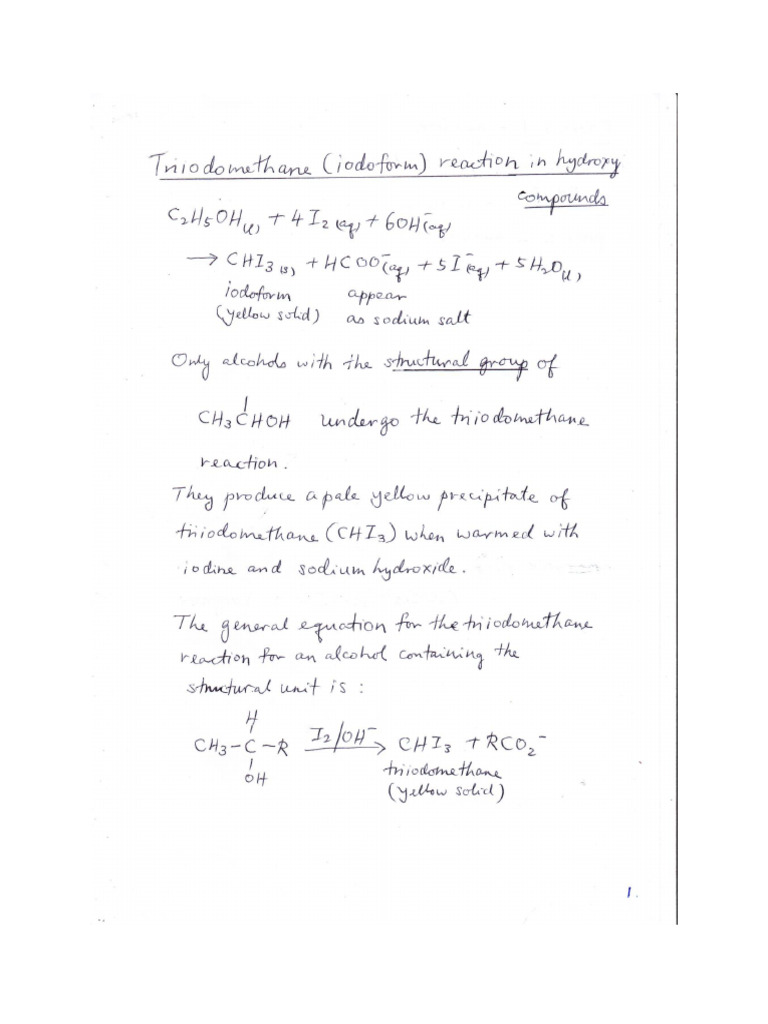 Triiodomethane (iodoform) reaction in hydroxy
compounds
C2H5OH(l) + 4I2(aq) + 6OH-(aq)
→ CHI3(s) + HCOO-(aq) + 5I-(aq) + 5H2O(l)
iodoform appear
(yellow solid) as sodium salt
Only alcohols with the structural group of
|
CH3CHOH undergo the triiodomethane
reaction.
They produce a pale yellow precipitate of
triiodomethane (CHI3) when warmed with
iodine and sodium hydroxide.
The general equation for the triiodomethane
reaction for an alcohol containing the
structural unit is :
H
CH3-C-R I2/OH- → CHI3 + RCO2-
OH triiodomethane
(yellow solid)
1.